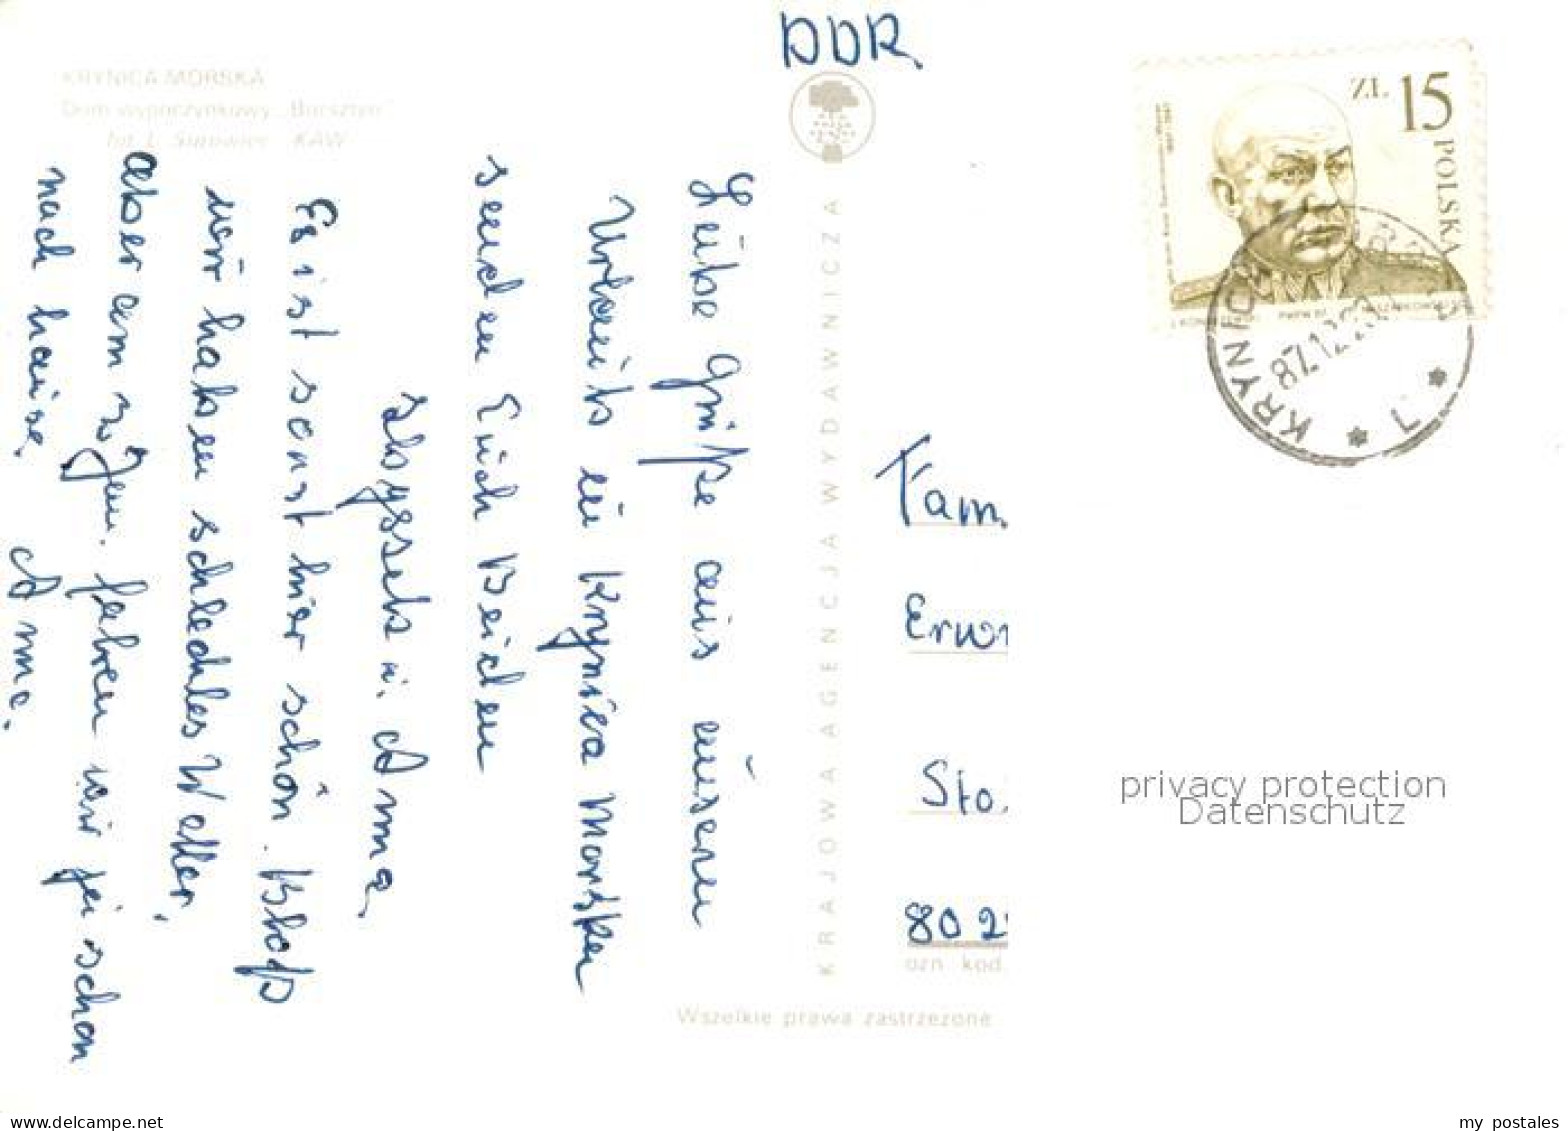 DDR
KRYNICA MORSKA
Dom wypoczynkowy „Bursztyn”
fot. KAW
Liebe Grüße aus unseren
Urlaub in Krynica Morska
senden Euch Beiden
u. Anna.
Es ist sonst hier schön. Bloß
wir haben schlechtes Wetter,
aber am fahren wir ja schon
nach hause. Anna.
KRAJOWA AGENCJA WYDAWNICZA
ZŁ 15
POLSKA
PWPW 87
KRYNICA
87.12.
Fam.
Erw
Sto.
802
ozn. kod.
Wszelkie prawa zastrzeżone
privacy protection
Datenschutz
https://www.delcampe.net
my_postales